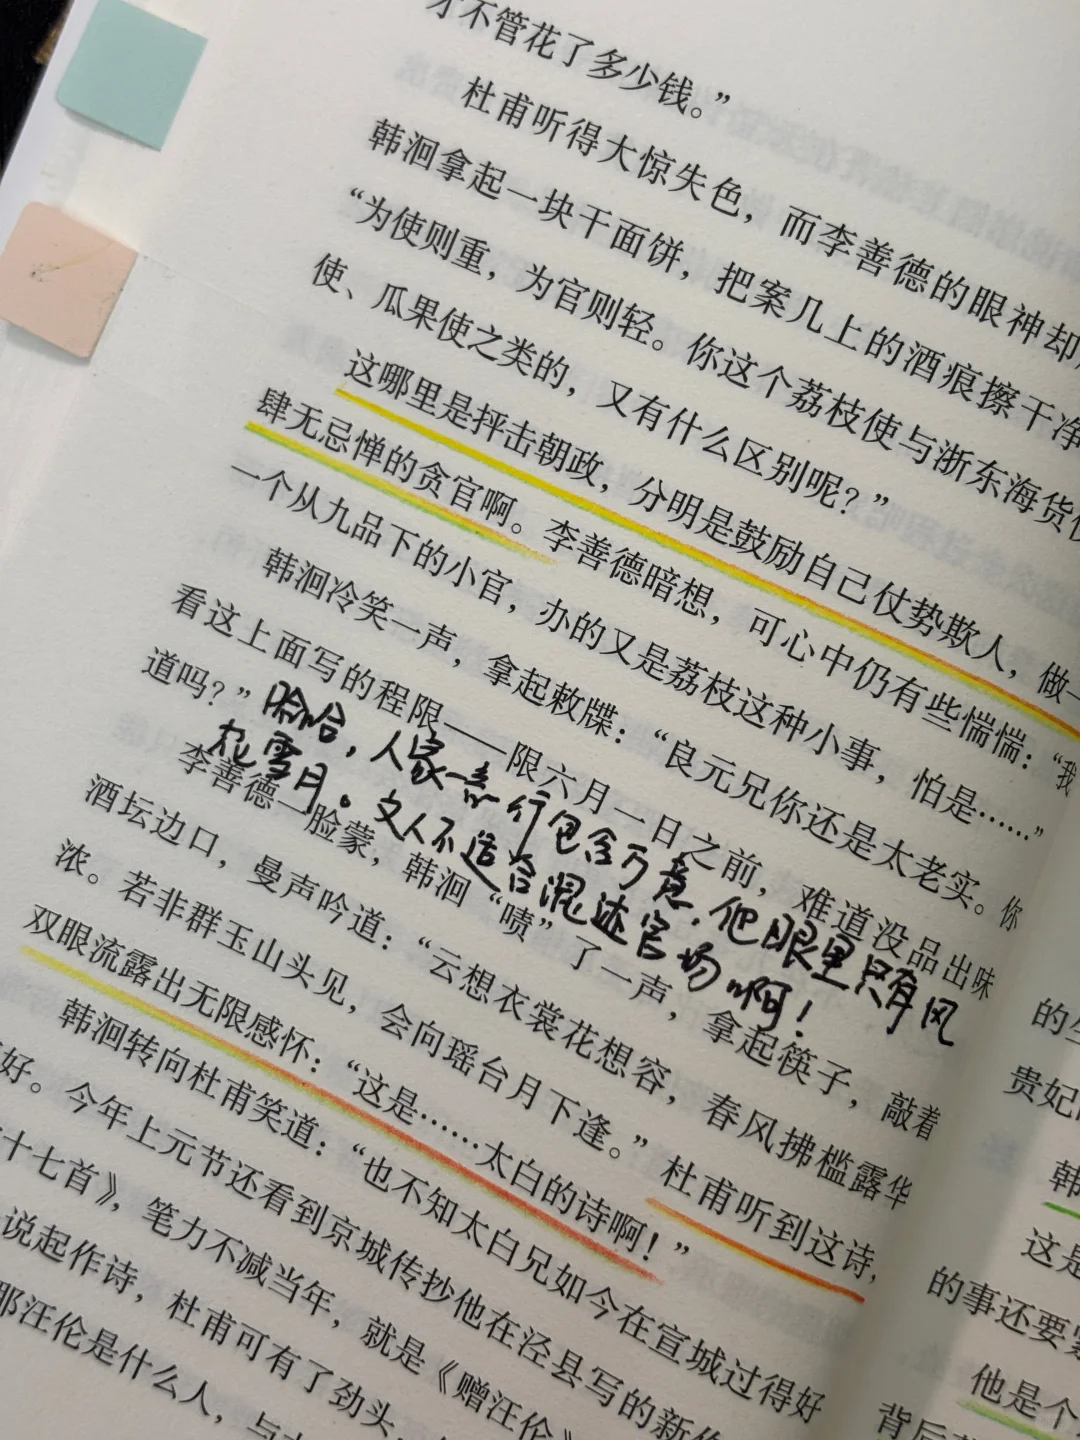 才不管花了多少钱。”
杜甫听得大惊失色，而李善德的眼神却
韩洄拿起一块干面饼，把案几上的酒痕擦干净
“为使则重，为官则轻。你这个荔枝使与浙东海货使
使、瓜果使之类的，又有什么区别呢？”
这哪里是抨击朝政，分明是鼓励自己仗势欺人，做一
肆无忌惮的贪官啊。李善德暗想，可心中仍有些惴惴：“我
一个从九品下的小官，办的又是荔枝这种小事，怕是……”
韩洄冷笑一声，拿起敕牒：“良元兄你还是太老实。你
看这上面写的程限——限六月一日之前，难道没品出味
道吗？”
哈哈，人家一言一行包含万意，他眼里只有风
花雪月。文人不适合混迹官场啊！
李善德一脸蒙，韩洄“啧”了一声，拿起筷子，敲着
酒坛边口，曼声吟道：“云想衣裳花想容，春风拂槛露华
浓。若非群玉山头见，会向瑶台月下逢。”杜甫听到这诗，
双眼流露出无限感怀：“这是……太白的诗啊！”
韩洄转向杜甫笑道：“也不知太白兄如今在宣城过得好
好。今年上元节还看到京城传抄他在泾县写的新作
十七首》，笔力不减当年，就是《赠汪伦》
说起作诗，杜甫可有了劲头，
那汪伦是什么人，与
的
贵妃
韩
这是
的事还要
他是个
背后